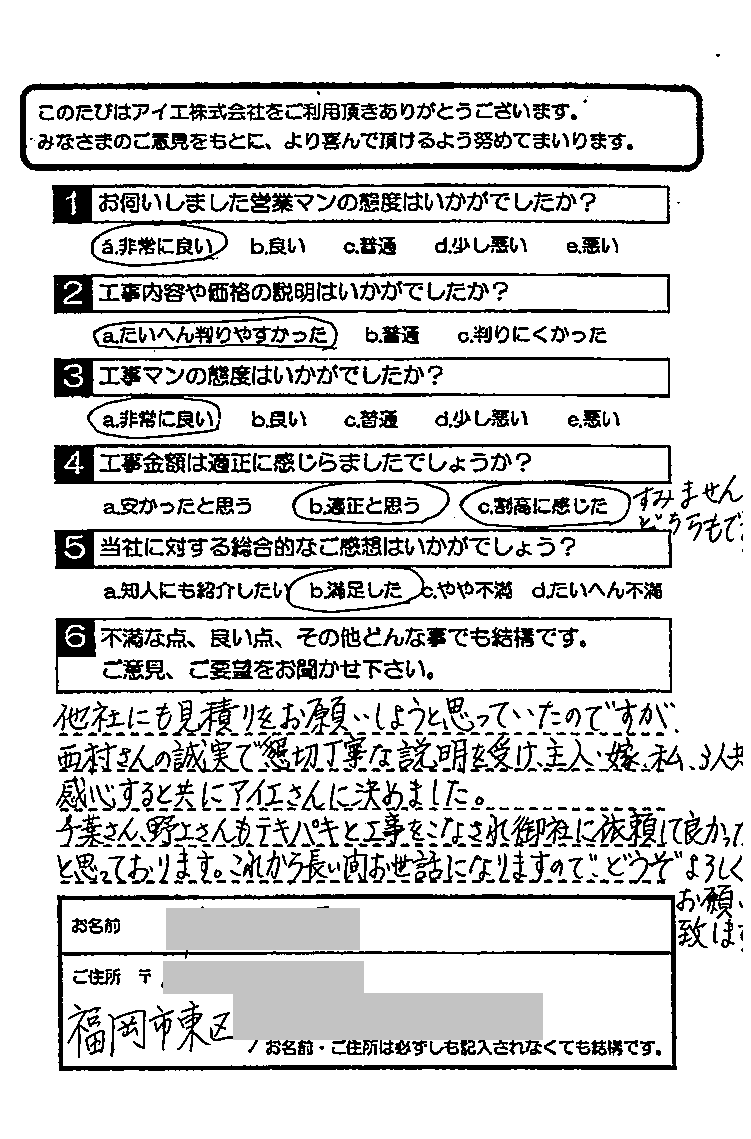 このたびはアイエ株式会社をご利用頂きありがとうございます。
みなさまのご意見をもとに、より喜んで頂けるよう努めてまいります。
1 お伺いしました営業マンの態度はいかがでしたか?
a.非常に良い b.良い c.普通 d.少し悪い e.悪い
2 工事内容や価格の説明はいかがでしたか?
a.たいへん判りやすかった b.普通 c.判りにくかった
3 工事マンの態度はいかがでしたか?
a.非常に良い b.良い c.普通 d.少し悪い e.悪い
4 工事金額は適正に感じらましたでしょうか?
a.安かったと思う b.適正と思う c.割高に感じた すみません
どちらもで
5 当社に対する総合的なご感想はいかがでしょう?
a.知人にも紹介したい b.満足した c.やや不満 d.たいへん不満
6 不満な点、良い点、その他どんな事でも結構です。
ご意見、ご要望をお聞かせ下さい。
他社にも見積りをお願いしようと思っていたのですが、
西村さんの誠実で懇切丁寧な説明を受け、主人・嫁、私、3人共
感心すると共にアイエさんに決めました。
千葉さん、野上さんもテキパキと工事をこなされ御社に依頼して良かった
と思っております。これから長い間お世話になりますので、どうぞよろしく
お願い
致します
お名前
ご住所 〒
福岡市東区
お名前・ご住所は必ずしも記入されなくても結構です。